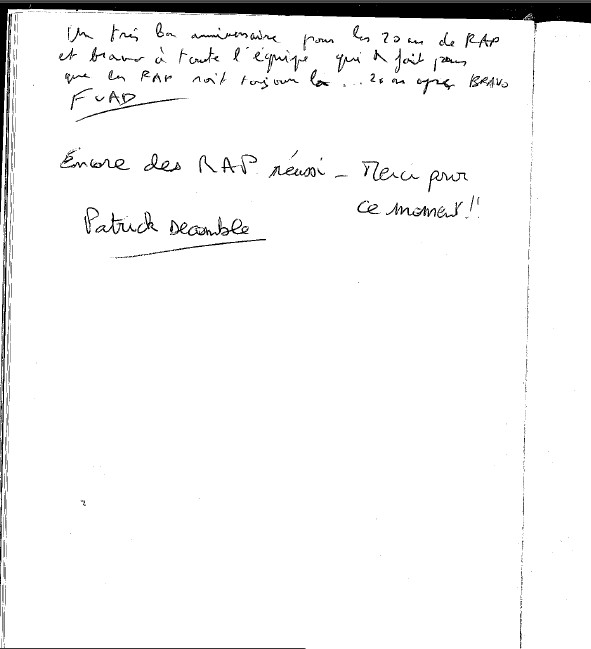 Un très bon anniversaire pour les 20 ans de RAP
et bravo à toute l'équipe qui a fait pour
que les RAP soit toujours là ... 20 ans après BRAVO
FUAD
Encore des RAP réussi - Merci pour
ce moment !!
Patrick